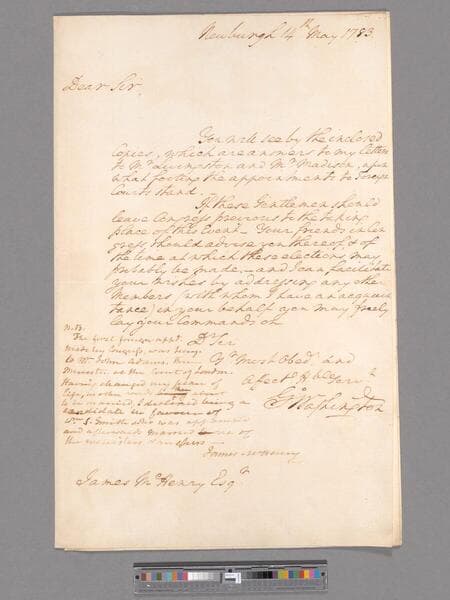 Newburgh 14th May 1783.
Dear Sir,
You will see by the inclosed
Copies, which are answers to my letters
to Mr Livingston and Mr Madison, upon
what footing the appointments to Foreign
Courts stand.
If these Gentlemen should
leave Congress previous to the taking
place of this Event – Your friends in Con
gress, should advise you thereof, & of
the time at which these elections may
probably be made, – and I can facilitate
your wishes by addressing any other
Members (with whom I have an acquain
tance) in your behalf you may freely
lay your Commands on
Dr Sir
Yr Most Obedt and
Affect Hble Servt
Go Washington
N.B.
The first foreign appt.
made by Congress, was
to Mr John Adams. the
Minister at the Court of London.
Having changed my plan of
life,
to be married, I declined being a
candidate in favour of
Wm S. Smith who was appointed
and afterwards married one of
the
James McHenry
James McHenry Esqr